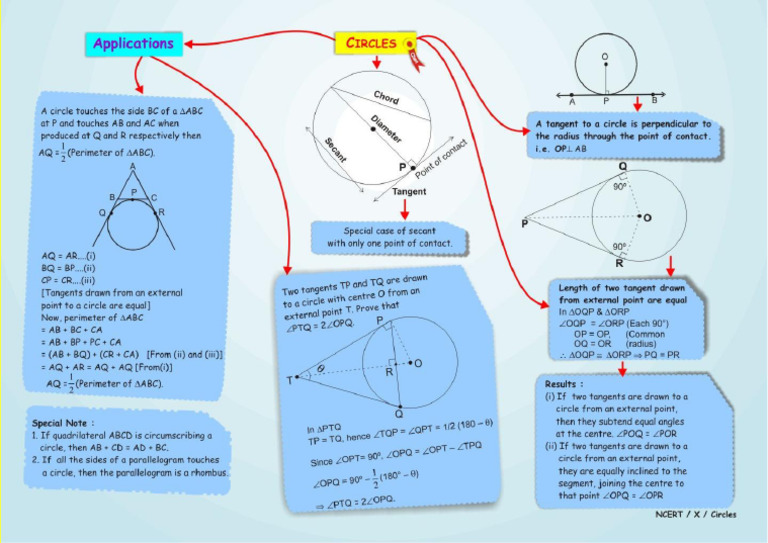 Applications
CIRCLES
A circle touches the side BC of a ΔABC
at P and touches AB and AC when
produced at Q and R respectively then
AQ = 1/2 (Perimeter of ΔABC).
A
B P C
Q R
AQ = AR....(i)
BQ = BP....(ii)
CP = CR....(iii)
[Tangents drawn from an external
point to a circle are equal]
Now, perimeter of ΔABC
= AB + BC + CA
= AB + BP + PC + CA
= (AB + BQ) + (CR + CA) [From (ii) and (iii)]
= AQ + AR = AQ + AQ [From(i)]
AQ = 1/2 (Perimeter of ΔABC).
Special Note :
1. If quadrilateral ABCD is circumscribing a
circle, then AB + CD = AD + BC.
2. If all the sides of a parallelogram touches
a circle, then the parallelogram is a rhombus.
Chord
Diameter
Secant
P
Point of contact
Tangent
Special case of secant
with only one point of contact.
Two tangents TP and TQ are drawn
to a circle with centre O from an
external point T. Prove that
∠PTQ = 2∠OPQ.
P
T θ R O
Q
In ΔPTQ
TP = TQ, hence ∠TQP = ∠QPT = 1/2 (180 – θ)
Since ∠OPT= 90°, ∠OPQ = ∠OPT – ∠TPQ
∠OPQ = 90° – 1/2 (180° – θ)
⇒ ∠PTQ = 2∠OPQ.
O
A P B
A tangent to a circle is perpendicular to
the radius through the point of contact.
i.e. OP⊥ AB
Q
90°
P O
90°
R
Length of two tangent drawn
from external point are equal
In ΔOQP & ΔORP
∠OQP = ∠ORP (Each 90°)
OP = OP, (Common
OQ = OR (radius)
∴ ΔOQP ≅ ΔORP ⇒ PQ = PR
Results :
(i) If two tangents are drawn to a
circle from an external point,
then they subtend equal angles
at the centre. ∠POQ = ∠POR
(ii) If two tangents are drawn to a
circle from an external point,
they are equally inclined to the
segment, joining the centre to
that point ∠OPQ = ∠OPR
NCERT / X / Circles